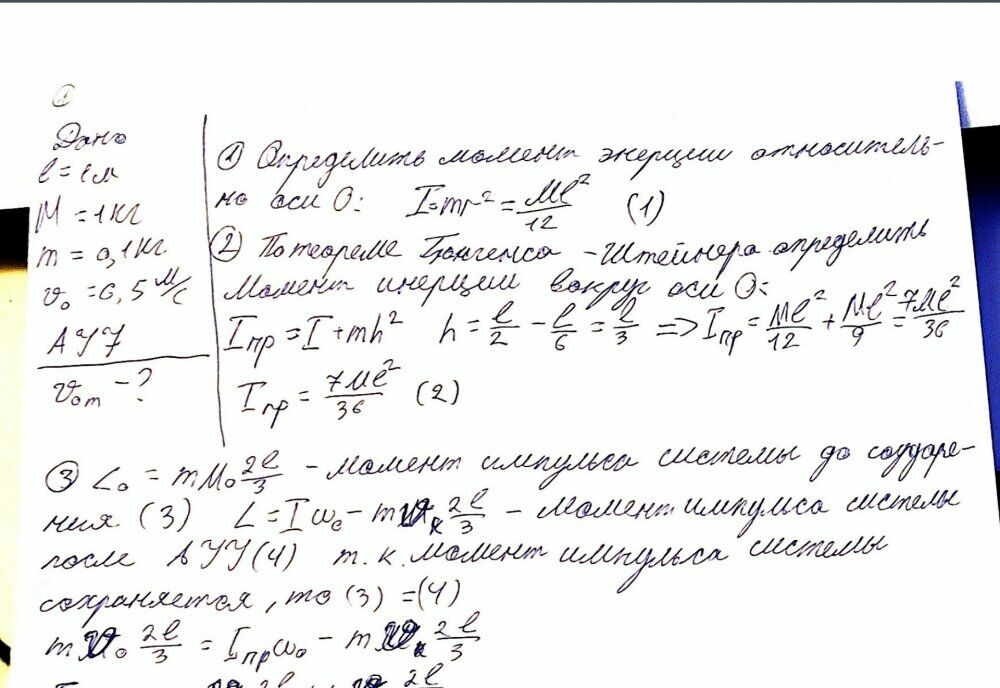 ①
Дано
l = 1м
M = 1кг
m = 0,1кг
v₀ = 6,5 м/с
АУУ
v₀т - ?
① Определить момент энерции относитель-
но оси О: I=mr² = Ml²/12 (1)
② По теореме Гюйгенса - Штейнера определить
Момент инерции вокруг оси О:
Iпр = I + mh² h = l/2 - l/6 = l/3 => Iпр = Ml²/12 + Ml²/9 = 7Ml²/36
Iпр = 7Ml²/36 (2)
③ L₀ = m 2l/3 - момент импульса системы до соударе-
ния (3) L = Iω₀ - mvₖ 2l/3 - момент импульса системы
после АУУ (4) т.к. момент импульса системы
сохраняется, то (3) = (4)
mv₀ 2l/3 = Iпрω₀ - mvₖ 2l/3